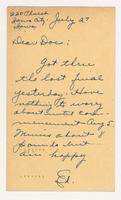 220 Church
Iowa City, July 27
Iowa
Dear Doc:
Got thru
the last final
yesterday. Have
nothing to worry
about until com-
mencement Aug 5.
Minus about 8
pounds but
am happy
Ed.